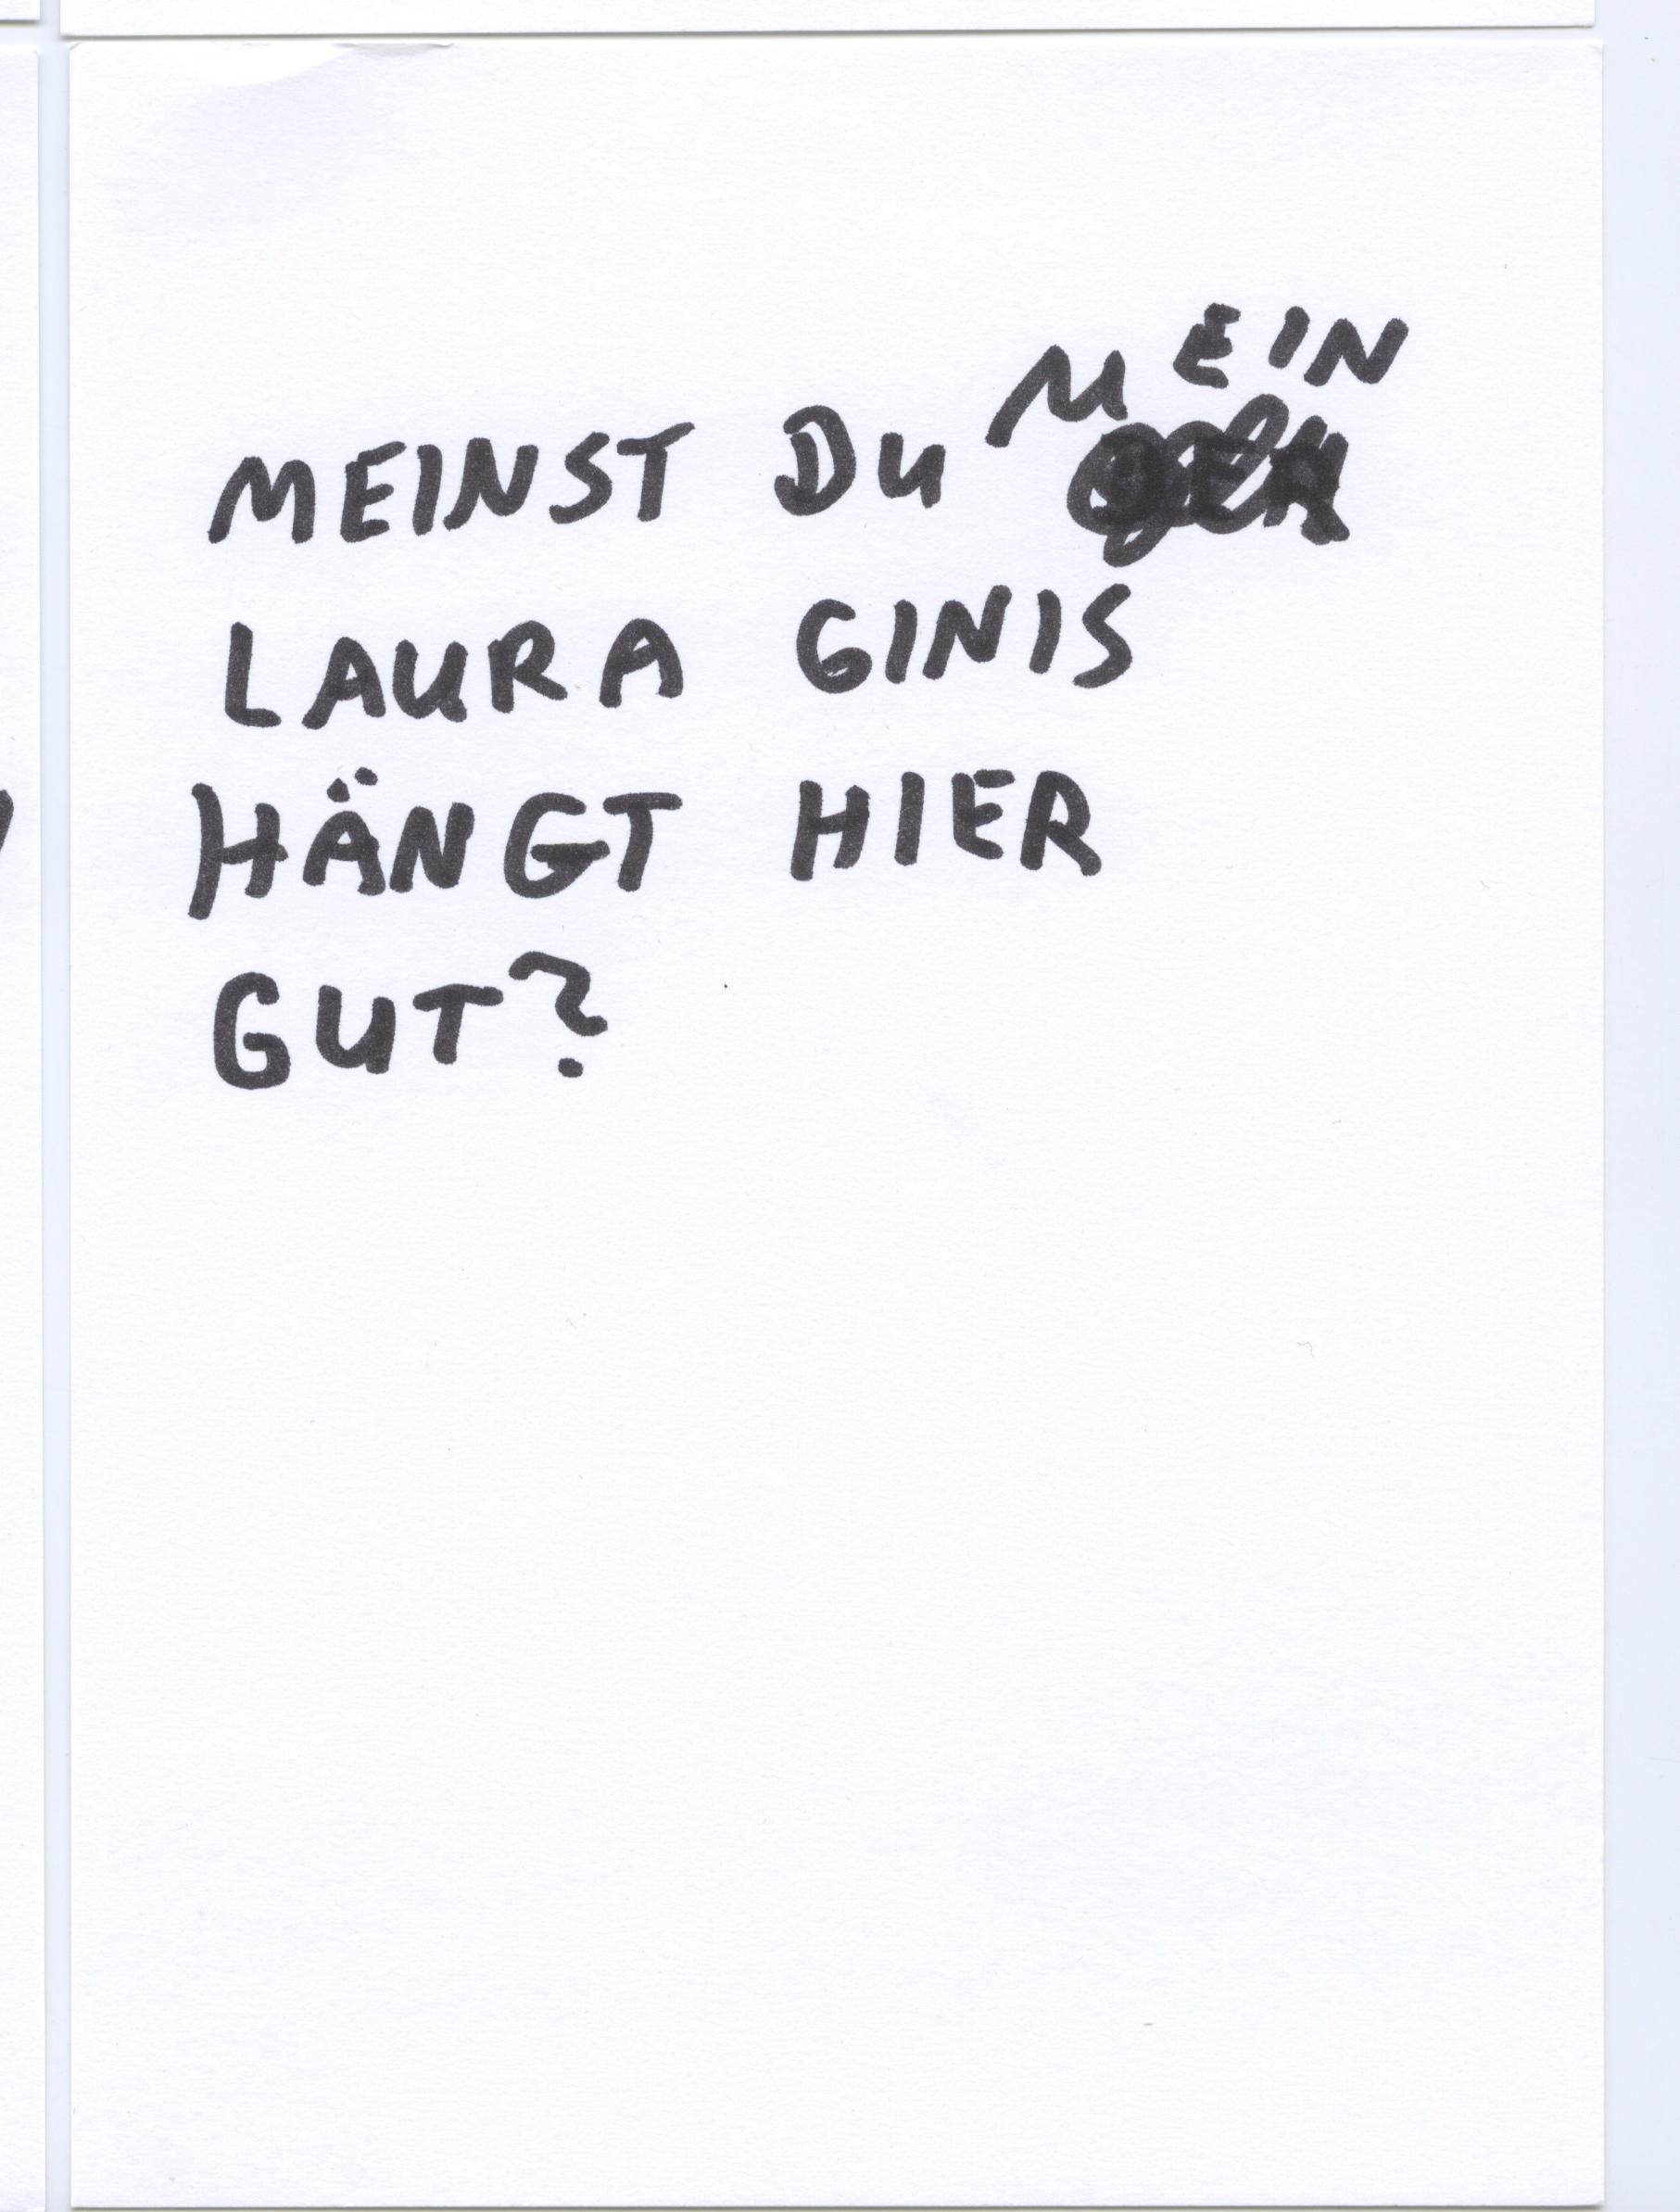 MEINST DU MEIN
LAURA GINIS
HÄNGT HIER
GUT?